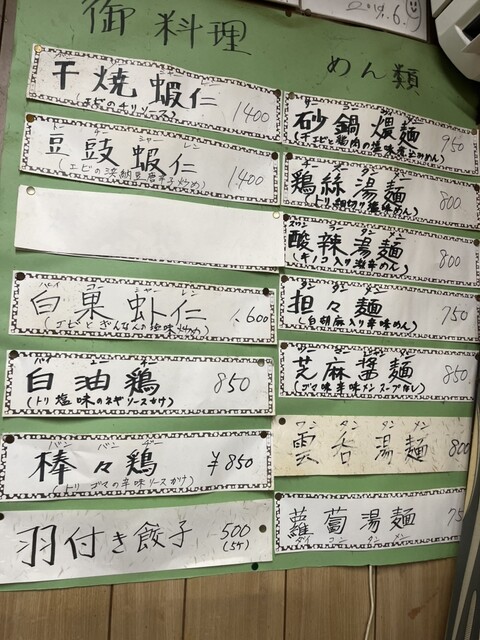 御料理
干焼蝦仁 1400
(エビのチリソース)
豆豉蝦仁 1400
白果虾仁 1600
(エビとぎんなんの塩味炒め)
白油鶏 850
(トリ塩味のネギソースかけ)
棒々鶏 ¥850
バン バン ヂー
(トリ ゴマの辛味ソースがけ)
羽付き餃子 500
(5ケ)
2019.6.
めん類
砂鍋煨麺 950
鶏絲湯麺 800
(トリ細切り塩味めん)
酸辣湯麺 800
(キノコ入り酸辛めん)
担々麺 750
(白胡麻入り辛味めん)
芝麻醤麺 850
(ゴマ味辛味メンスープなし)
ワン タン メン
雲呑湯麺 800
蘿蔔湯麺
ダイ コン タン メン